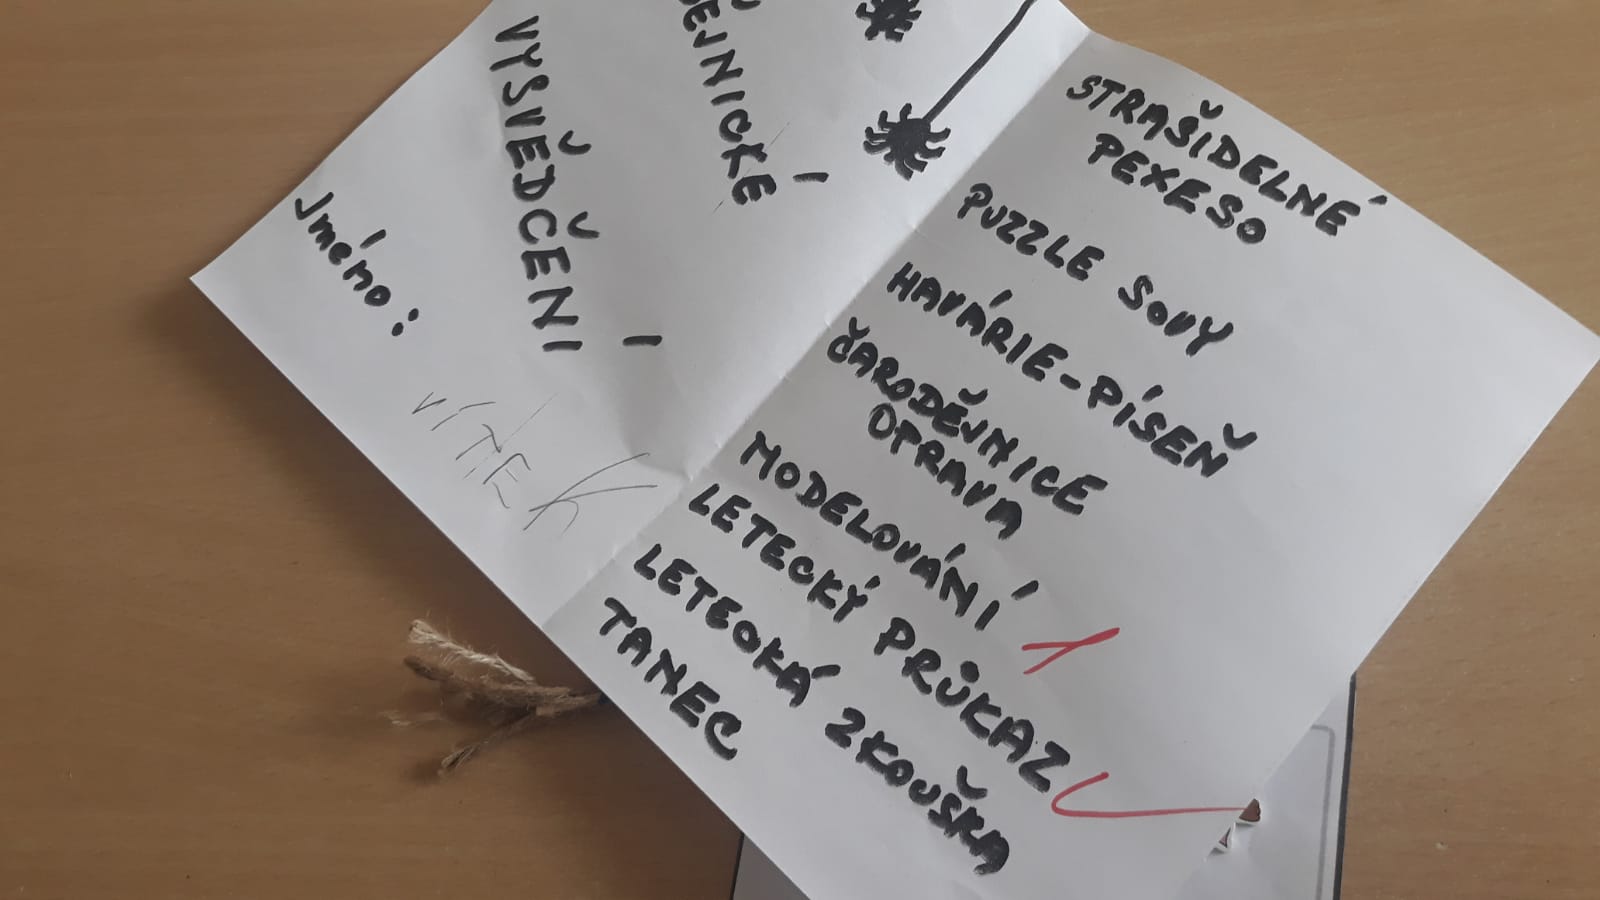 VYSVĚDČENÍ
Jméno:
VÍTEK
STRAŠIDELNÉ
PEXESO
PUZZLE SOVY
HAVÁRIE-PÍSEŇ
ČARODĚJNICE
OPRAVA
MODELOVÁNÍ 1
LETECKÝ PRŮKAZ
LETECKÁ ZKOUŠKA
TANEC